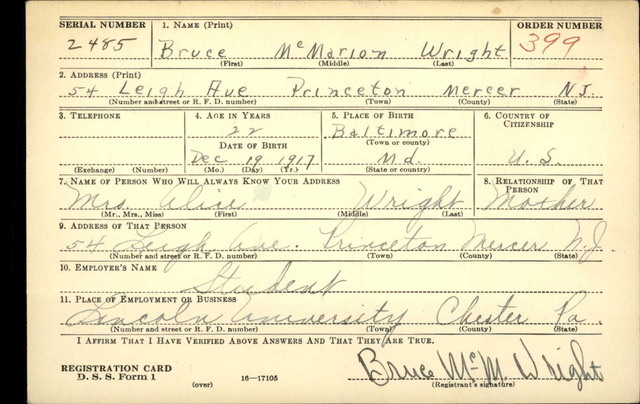 SERIAL NUMBER 1. NAME (Print) ORDER NUMBER
2485 Bruce McMarion Wright 399
(First) (Middle) (Last)
2. ADDRESS (Print)
54 Leigh Ave Princeton Mercer N.J.
(Number and street or R. F. D. number) (Town) (County) (State)
3. TELEPHONE 4. AGE IN YEARS 5. PLACE OF BIRTH 6. COUNTRY OF CITIZENSHIP
22 Baltimore
DATE OF BIRTH (Town or county)
Dec 19 1917 Md. U.S.
(Exchange) (Number) (Mo.) (Day) (Yr.) (State or country)
7. NAME OF PERSON WHO WILL ALWAYS KNOW YOUR ADDRESS 8. RELATIONSHIP OF THAT PERSON
Mrs. Alice Wright Mother
(Mr., Mrs., Miss) (First) (Middle) (Last)
9. ADDRESS OF THAT PERSON
54 Leigh Ave. Princeton Mercer N.J.
(Number and street or R. F. D. number) (Town) (County) (State)
10. EMPLOYER'S NAME
Student
11. PLACE OF EMPLOYMENT OR BUSINESS
Lincoln University Chester Pa.
(Number and street or R. F. D. number) (Town) (County) (State)
I AFFIRM THAT I HAVE VERIFIED ABOVE ANSWERS AND THAT THEY ARE TRUE.
REGISTRATION CARD Bruce McM. Wright
D. S. S. Form 1 (over) 16—17105 (Registrant's signature)